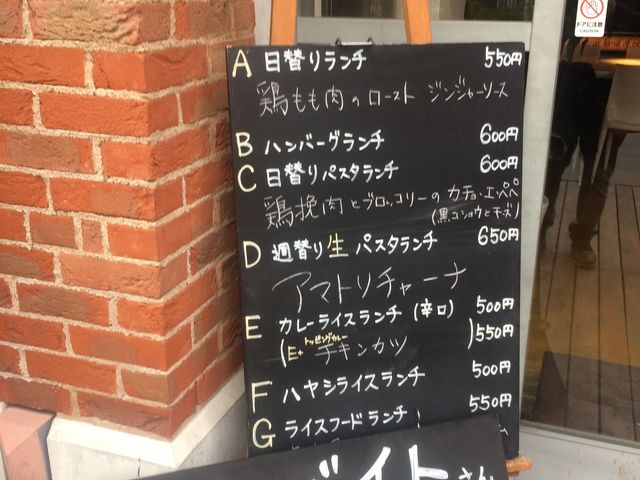 A 日替りランチ 550円
鶏もも肉のロースト ジンジャーソース
B ハンバーグランチ 600円
C 日替りパスタランチ 600円
鶏挽肉とブロッコリーのカチョ・エ・ペペ
(黒コショウとチーズ)
D 週替り生パスタランチ 650円
アマトリチャーナ
E カレーライスランチ (辛口) 500円
トッピングカレー
(E+ チキンカツ )550円
F ハヤシライスランチ 500円
G ライスフードランチ 550円
バイトさん
ドアに注意